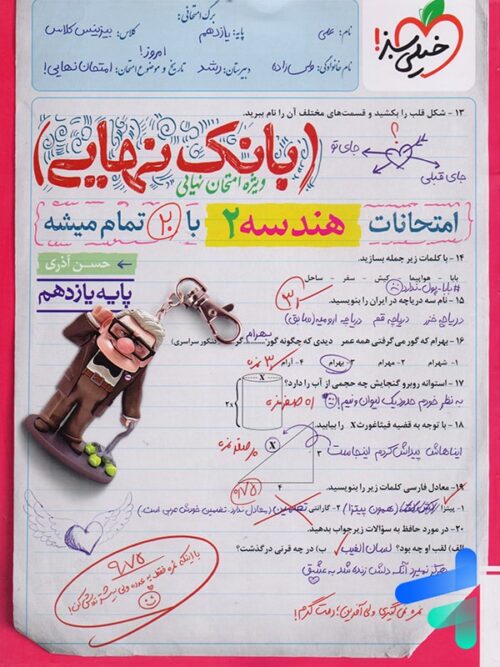 برگ امتحانی:
نام: علی
پایه: یازدهم
کلاس: بیزینس کلاس
نام خانوادگی:
دبیرستان: رشد
تاریخ و موضوع امتحان: امروز! امتحان نهایی!
خیلی سبز!
۱۳ - شکل قلب را بکشید و قسمت‌های مختلف آن را نام ببرید.
؟
جای تو
جای قبلی
(بانک نهایی)
ویژه امتحان نهایی
امتحانات هندسه ۲ با ۲۰ تمام میشه
حسن آذری
پایه یازدهم
۱۴ - با کلمات زیر جمله بسازید.
بابا - هواپیما - کیش - سفر - ساحل
#بابا-پول-نداره
۳
۱۵ - نام سه دریاچه در ایران را بنویسید.
دریاچه خزر دریاچه قم دریاچه ارومیه (سابق)
۱۶ - بهرام که گور می‌گرفتی همه عمر دیدی که چگونه گور بهرام گرفت (کنکور سراسری)
۱- شهرام ۲- مهرام ۳- بهرام ۴- آرام
۳ نمره
۱۷ - استوانه روبرو گنجایش چه حجمی از آب را دارد؟
x
2x
به نظر خودم حدود یک لیوان و نیم
۱۸ - با توجه به قضیه فیثاغورث X را بیابید.
ایناهاش پیداش کردم اینجاست
X
۳
۴
صفر نمره
۱۹- معادل فارسی کلمات زیر را بنویسید.
۱- پیتزا (همون پیتزا) ۲- گارانتی تضمین (معادل ندارد. تضمین خودش عربی است)
۲۰- در مورد حافظ به سؤالات زیر جواب بدهید.
الف) لقب او چه بود؟ لسان الغیب ب) در چه قرنی درگذشت؟
هرگز نمیرد آنکه دلش زنده شد به عشق
با اینکه نمره فقط یه عدده ولی بیشتر تلاش کن!
نمره نمی‌گیری ولی آفرین! دمت گرم!